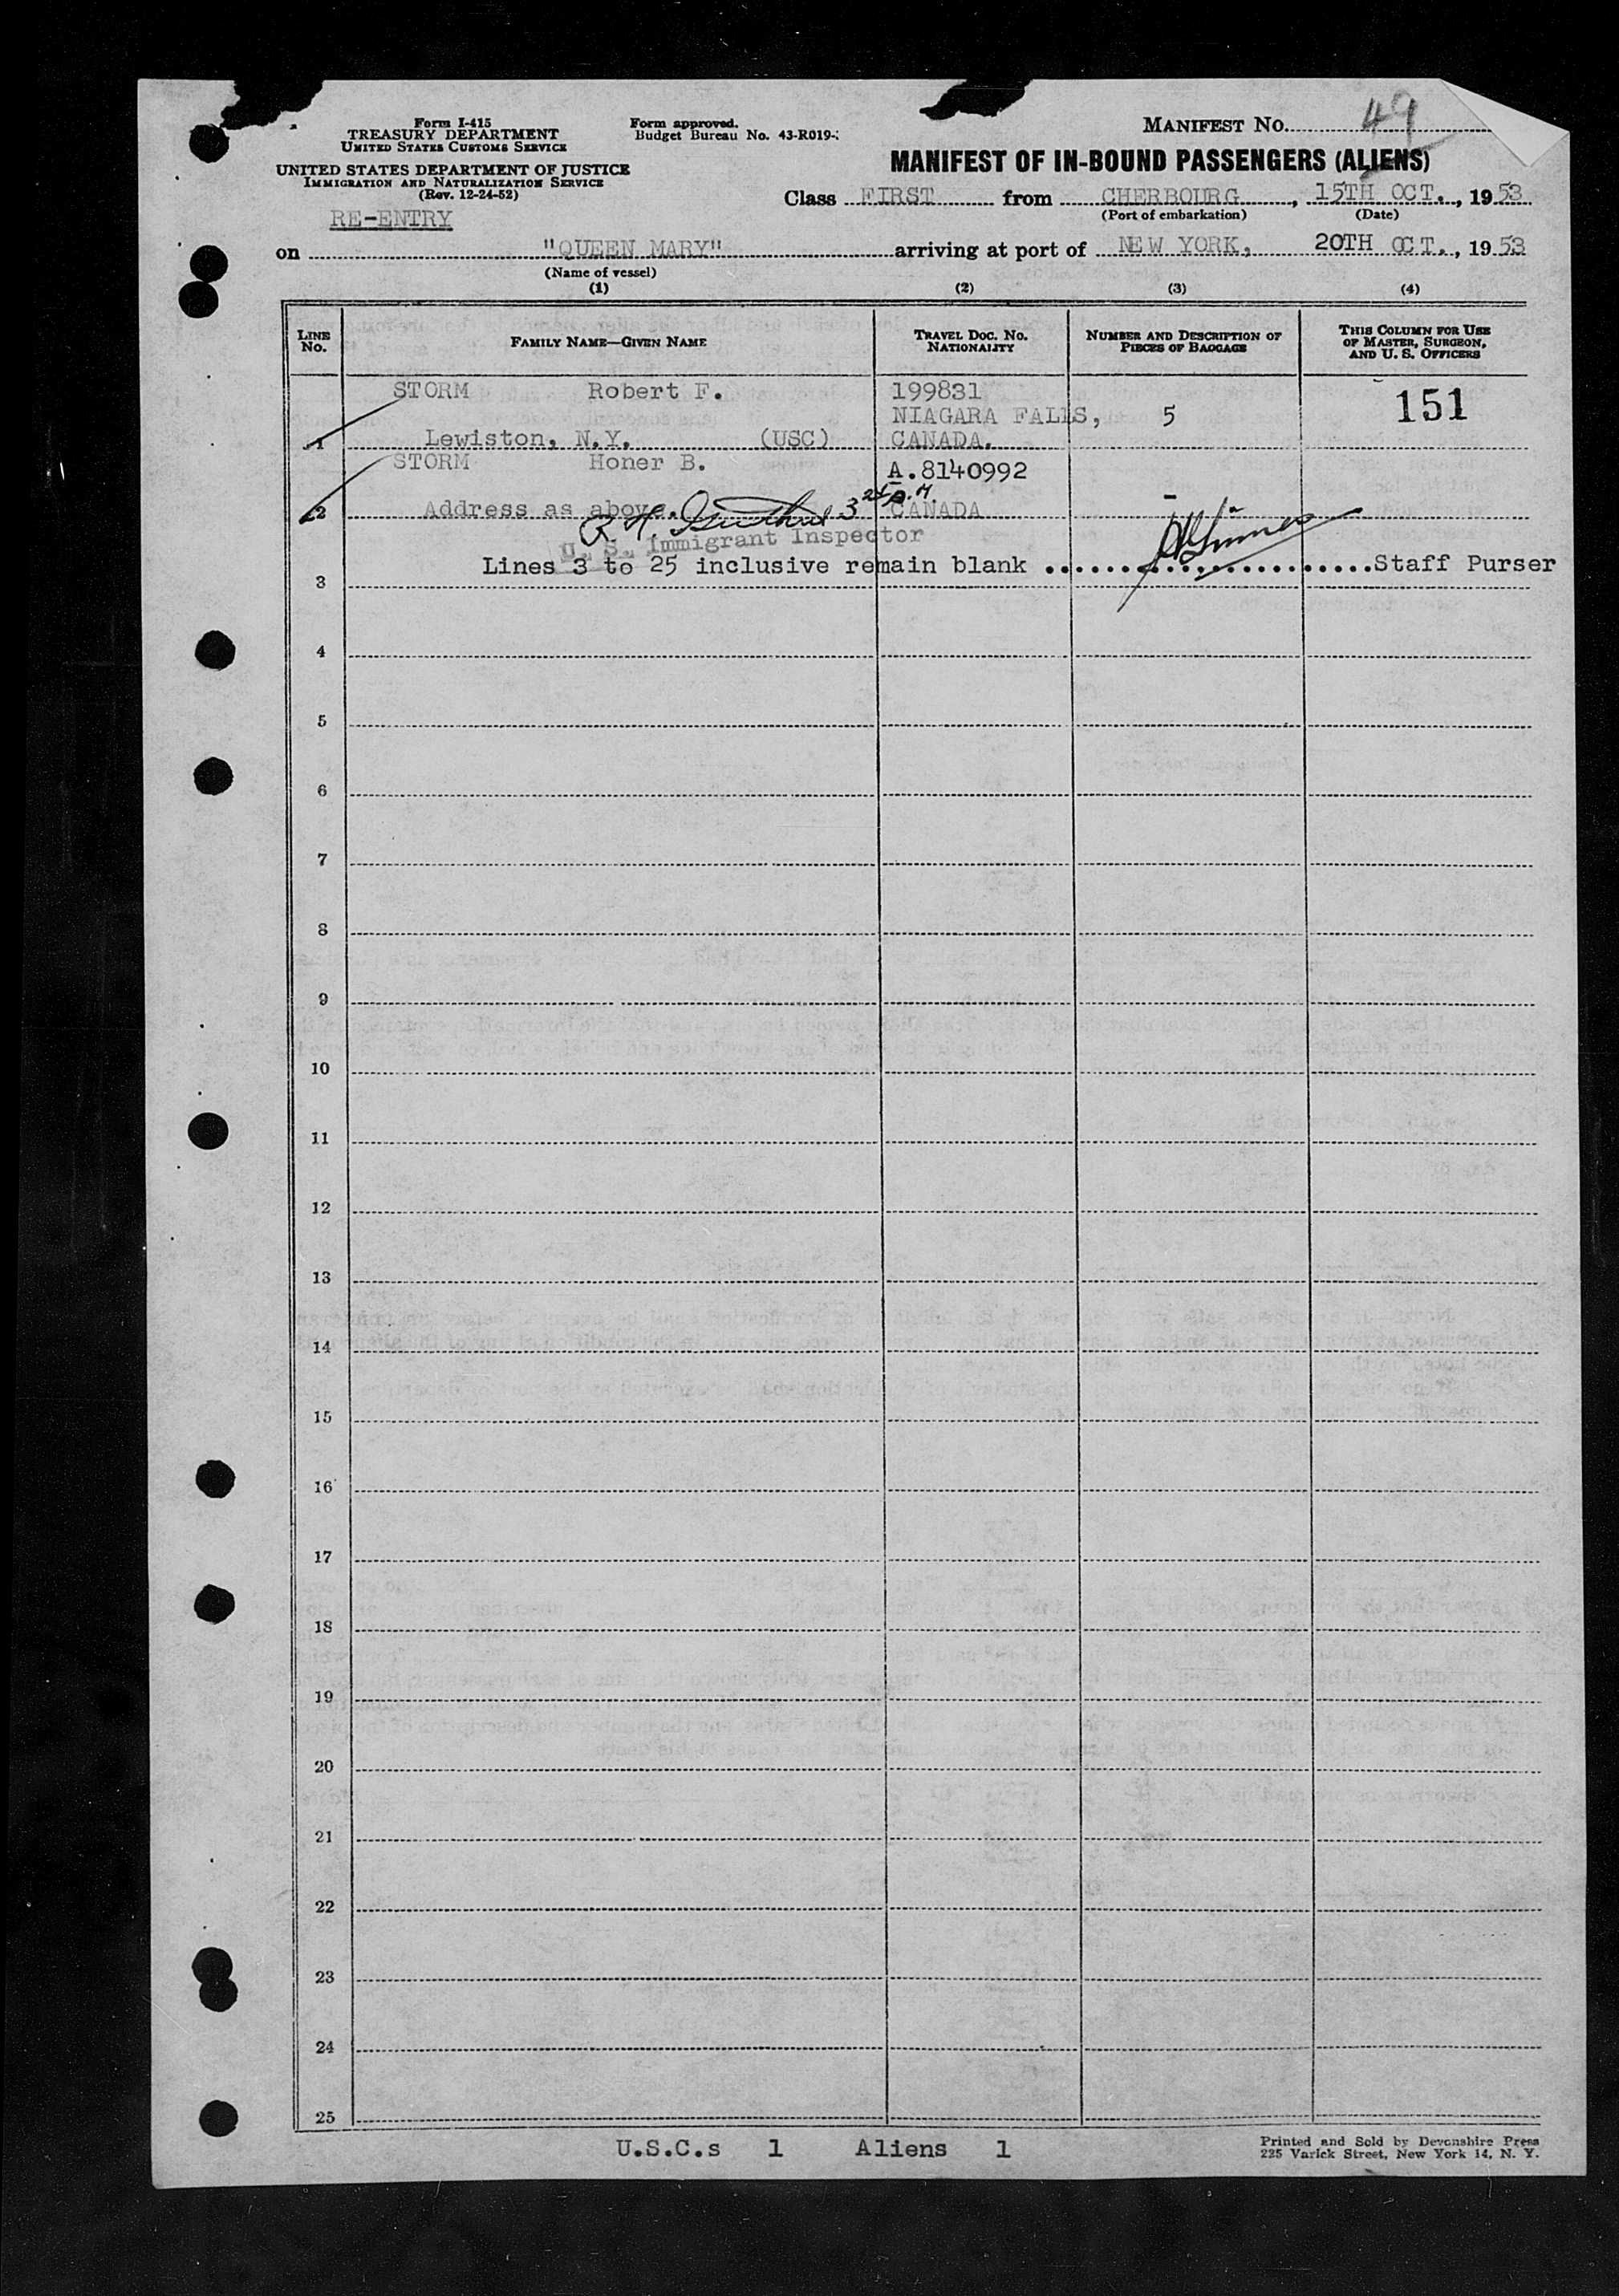 Form I-415
TREASURY DEPARTMENT
UNITED STATES CUSTOMS SERVICE
UNITED STATES DEPARTMENT OF JUSTICE
IMMIGRATION AND NATURALIZATION SERVICE
(Rev. 12-24-52)
RE-ENTRY
Form approved.
Budget Bureau No. 43-R019-
MANIFEST No. 49
MANIFEST OF IN-BOUND PASSENGERS (ALIENS)
Class FIRST from CHERBOURG, 15TH OCT., 1953
(Port of embarkation) (Date)
on "QUEEN MARY" arriving at port of NEW YORK, 20TH OCT., 1953
(Name of vessel)
(1) (2) (3) (4)
LINE No. FAMILY NAME—GIVEN NAME TRAVEL DOC. NO. NATIONALITY NUMBER AND DESCRIPTION OF PIECES OF BAGGAGE THIS COLUMN FOR USE OF MASTER, SURGEON, AND U. S. OFFICERS
STORM Robert F. 199831 151
NIAGARA FALLS, 5
1 Lewiston, N.Y. (USC) CANADA.
STORM Honer B. A.8140992
2 Address as above. CANADA
R. H.
U. S. Immigrant Inspector
Lines 3 to 25 inclusive remain blank ......................Staff Purser
3
4
5
6
7
8
9
10
11
12
13
14
15
16
17
18
19
20
21
22
23
24
25
U.S.C.s 1 Aliens 1
Printed and Sold by Devonshire Press
225 Varick Street, New York 14, N. Y.